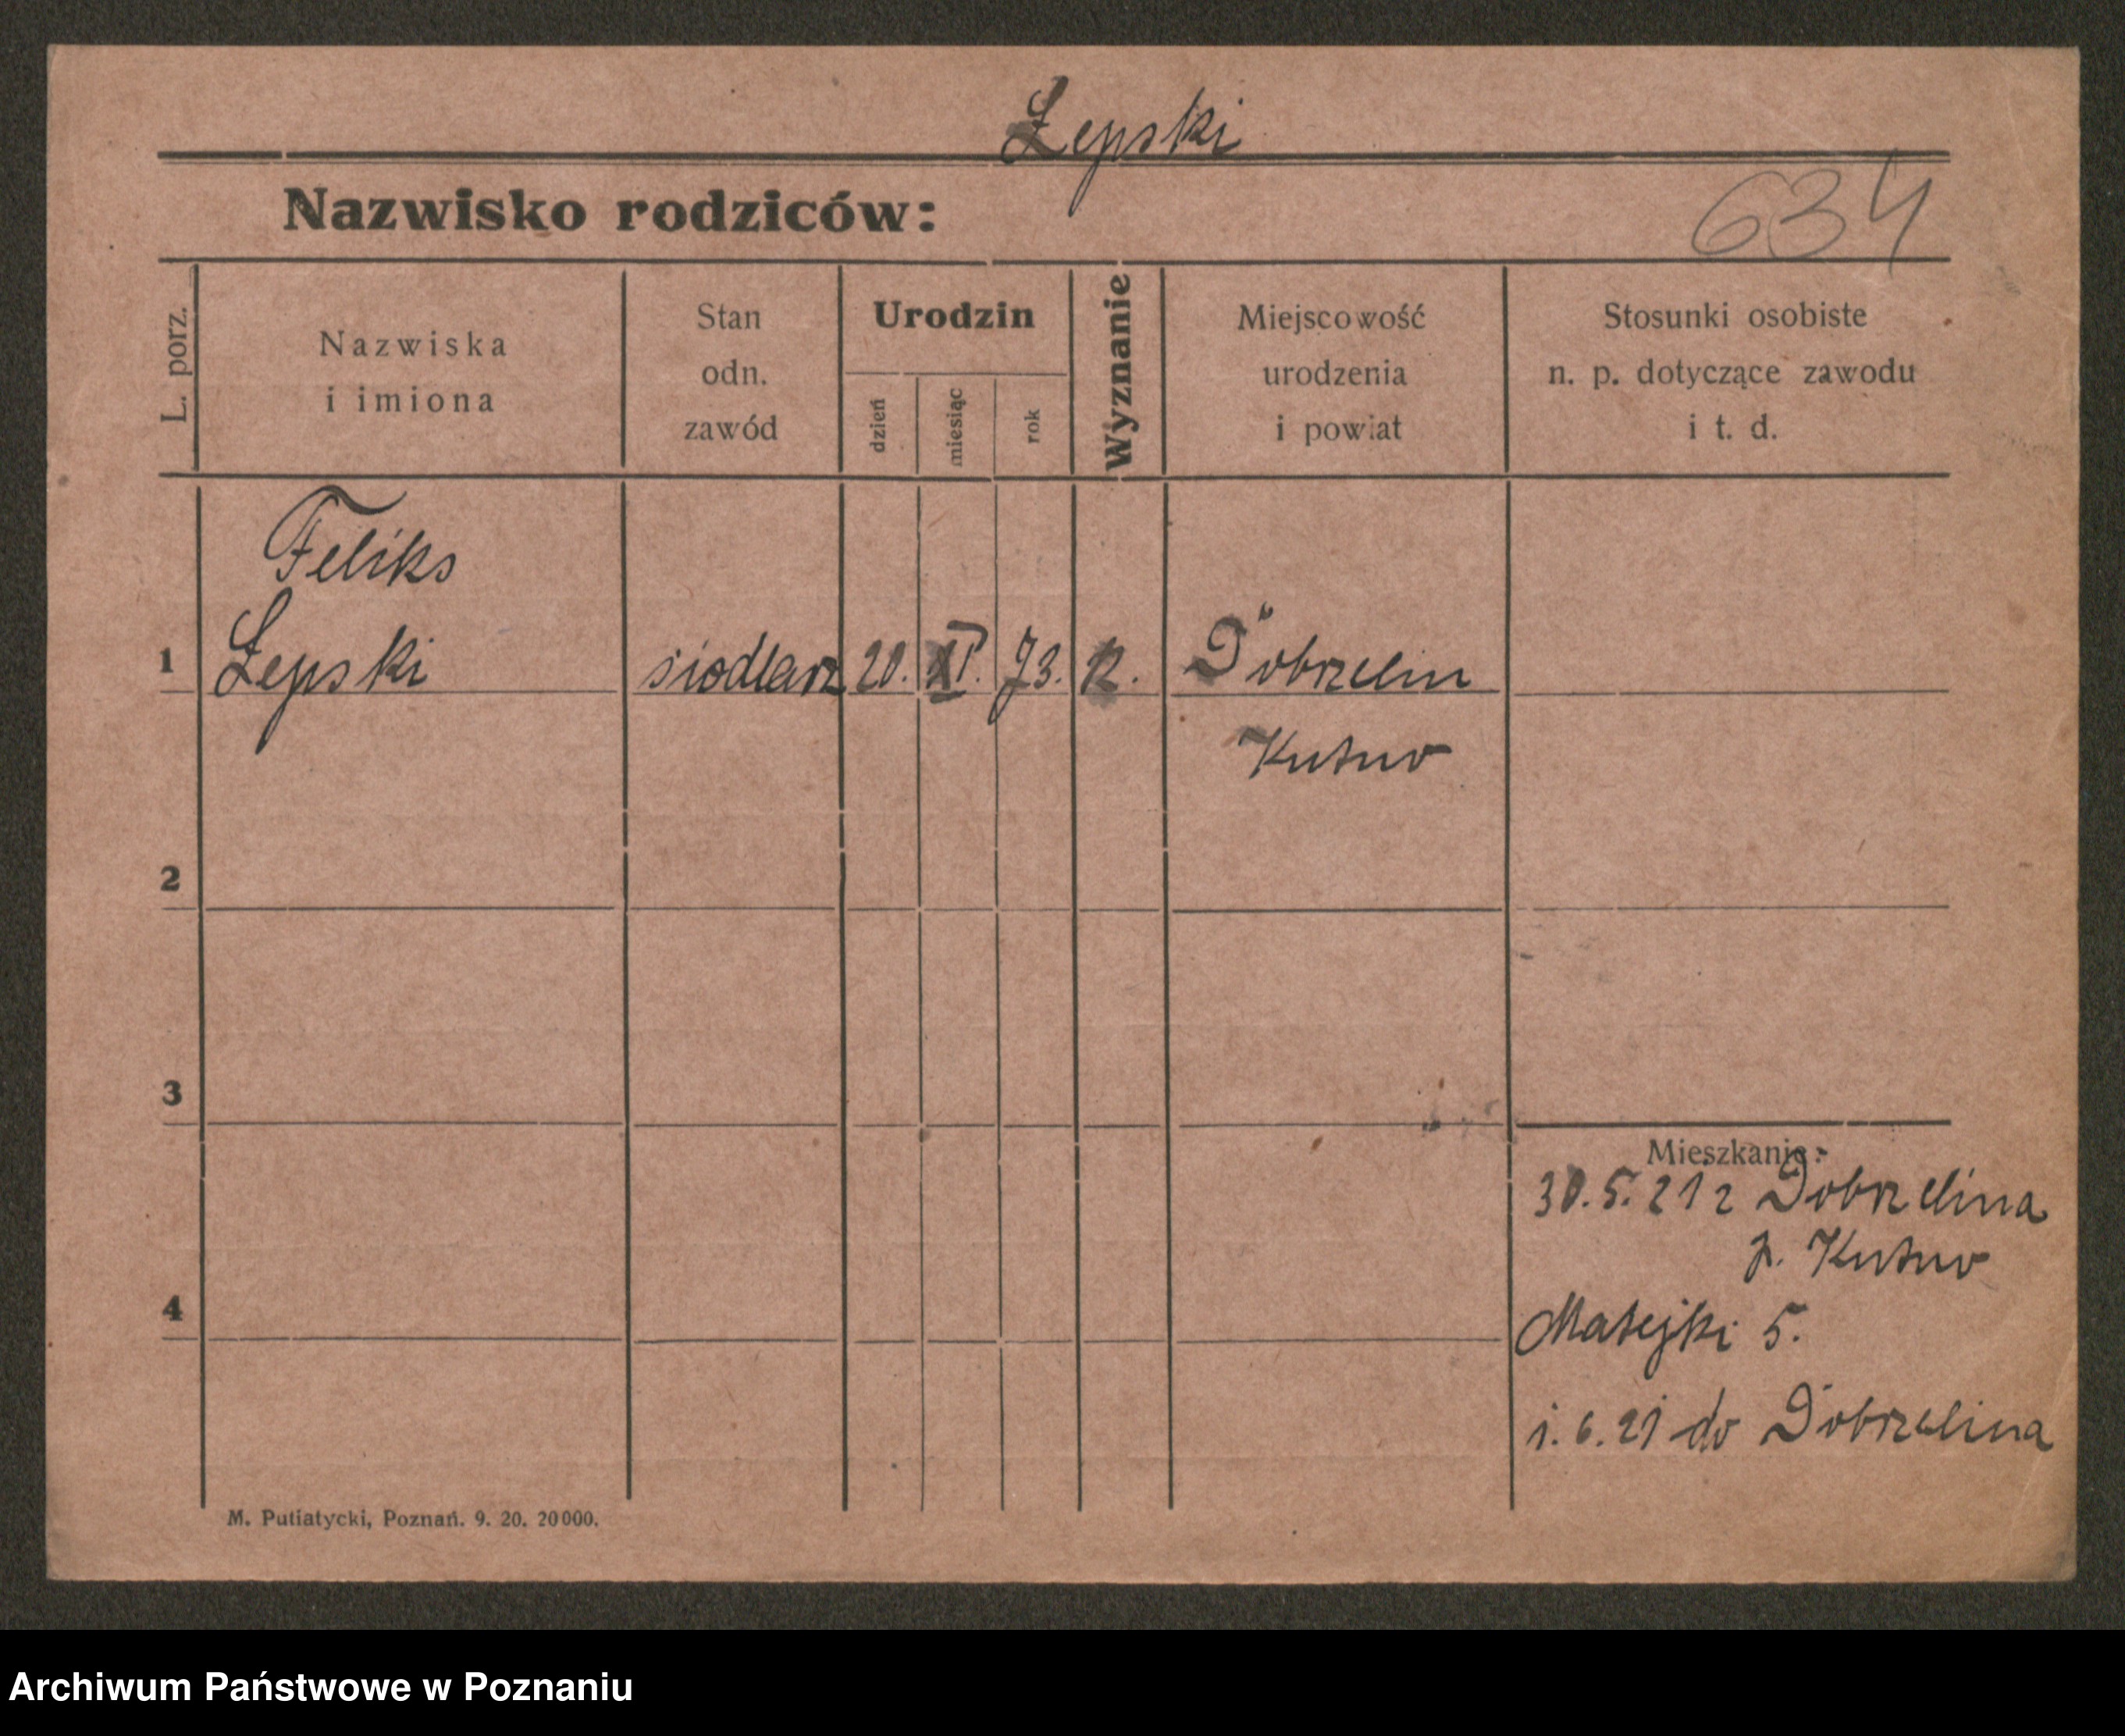 Łepski
Nazwisko rodziców:
634
L. porz.
Nazwiska
i imiona
Stan
odn.
zawód
Urodzin
dzień
miesiąc
rok
Wyznanie
Miejscowość
urodzenia
i powiat
Stosunki osobiste
n. p. dotyczące zawodu
i t. d.
Feliks
1 Łepski siodlarz 20. XI. 73. Dobrzelin
Kutno
2
3
Mieszkanie:
30.5.21 z Dobrzelina
p. Kutno
4
Matejki 5.
1.6.21 do Dobrzelina
M. Putiatycki, Poznań. 9. 20. 20000.
Archiwum Państwowe w Poznaniu